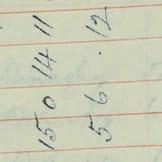 15 0 14 11
5 6 . 12